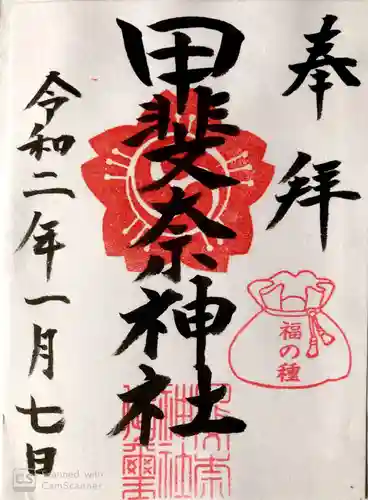 奉拝
甲斐奈神社
福の種
令和二年一月七日
CS Scanned with
CamScanner